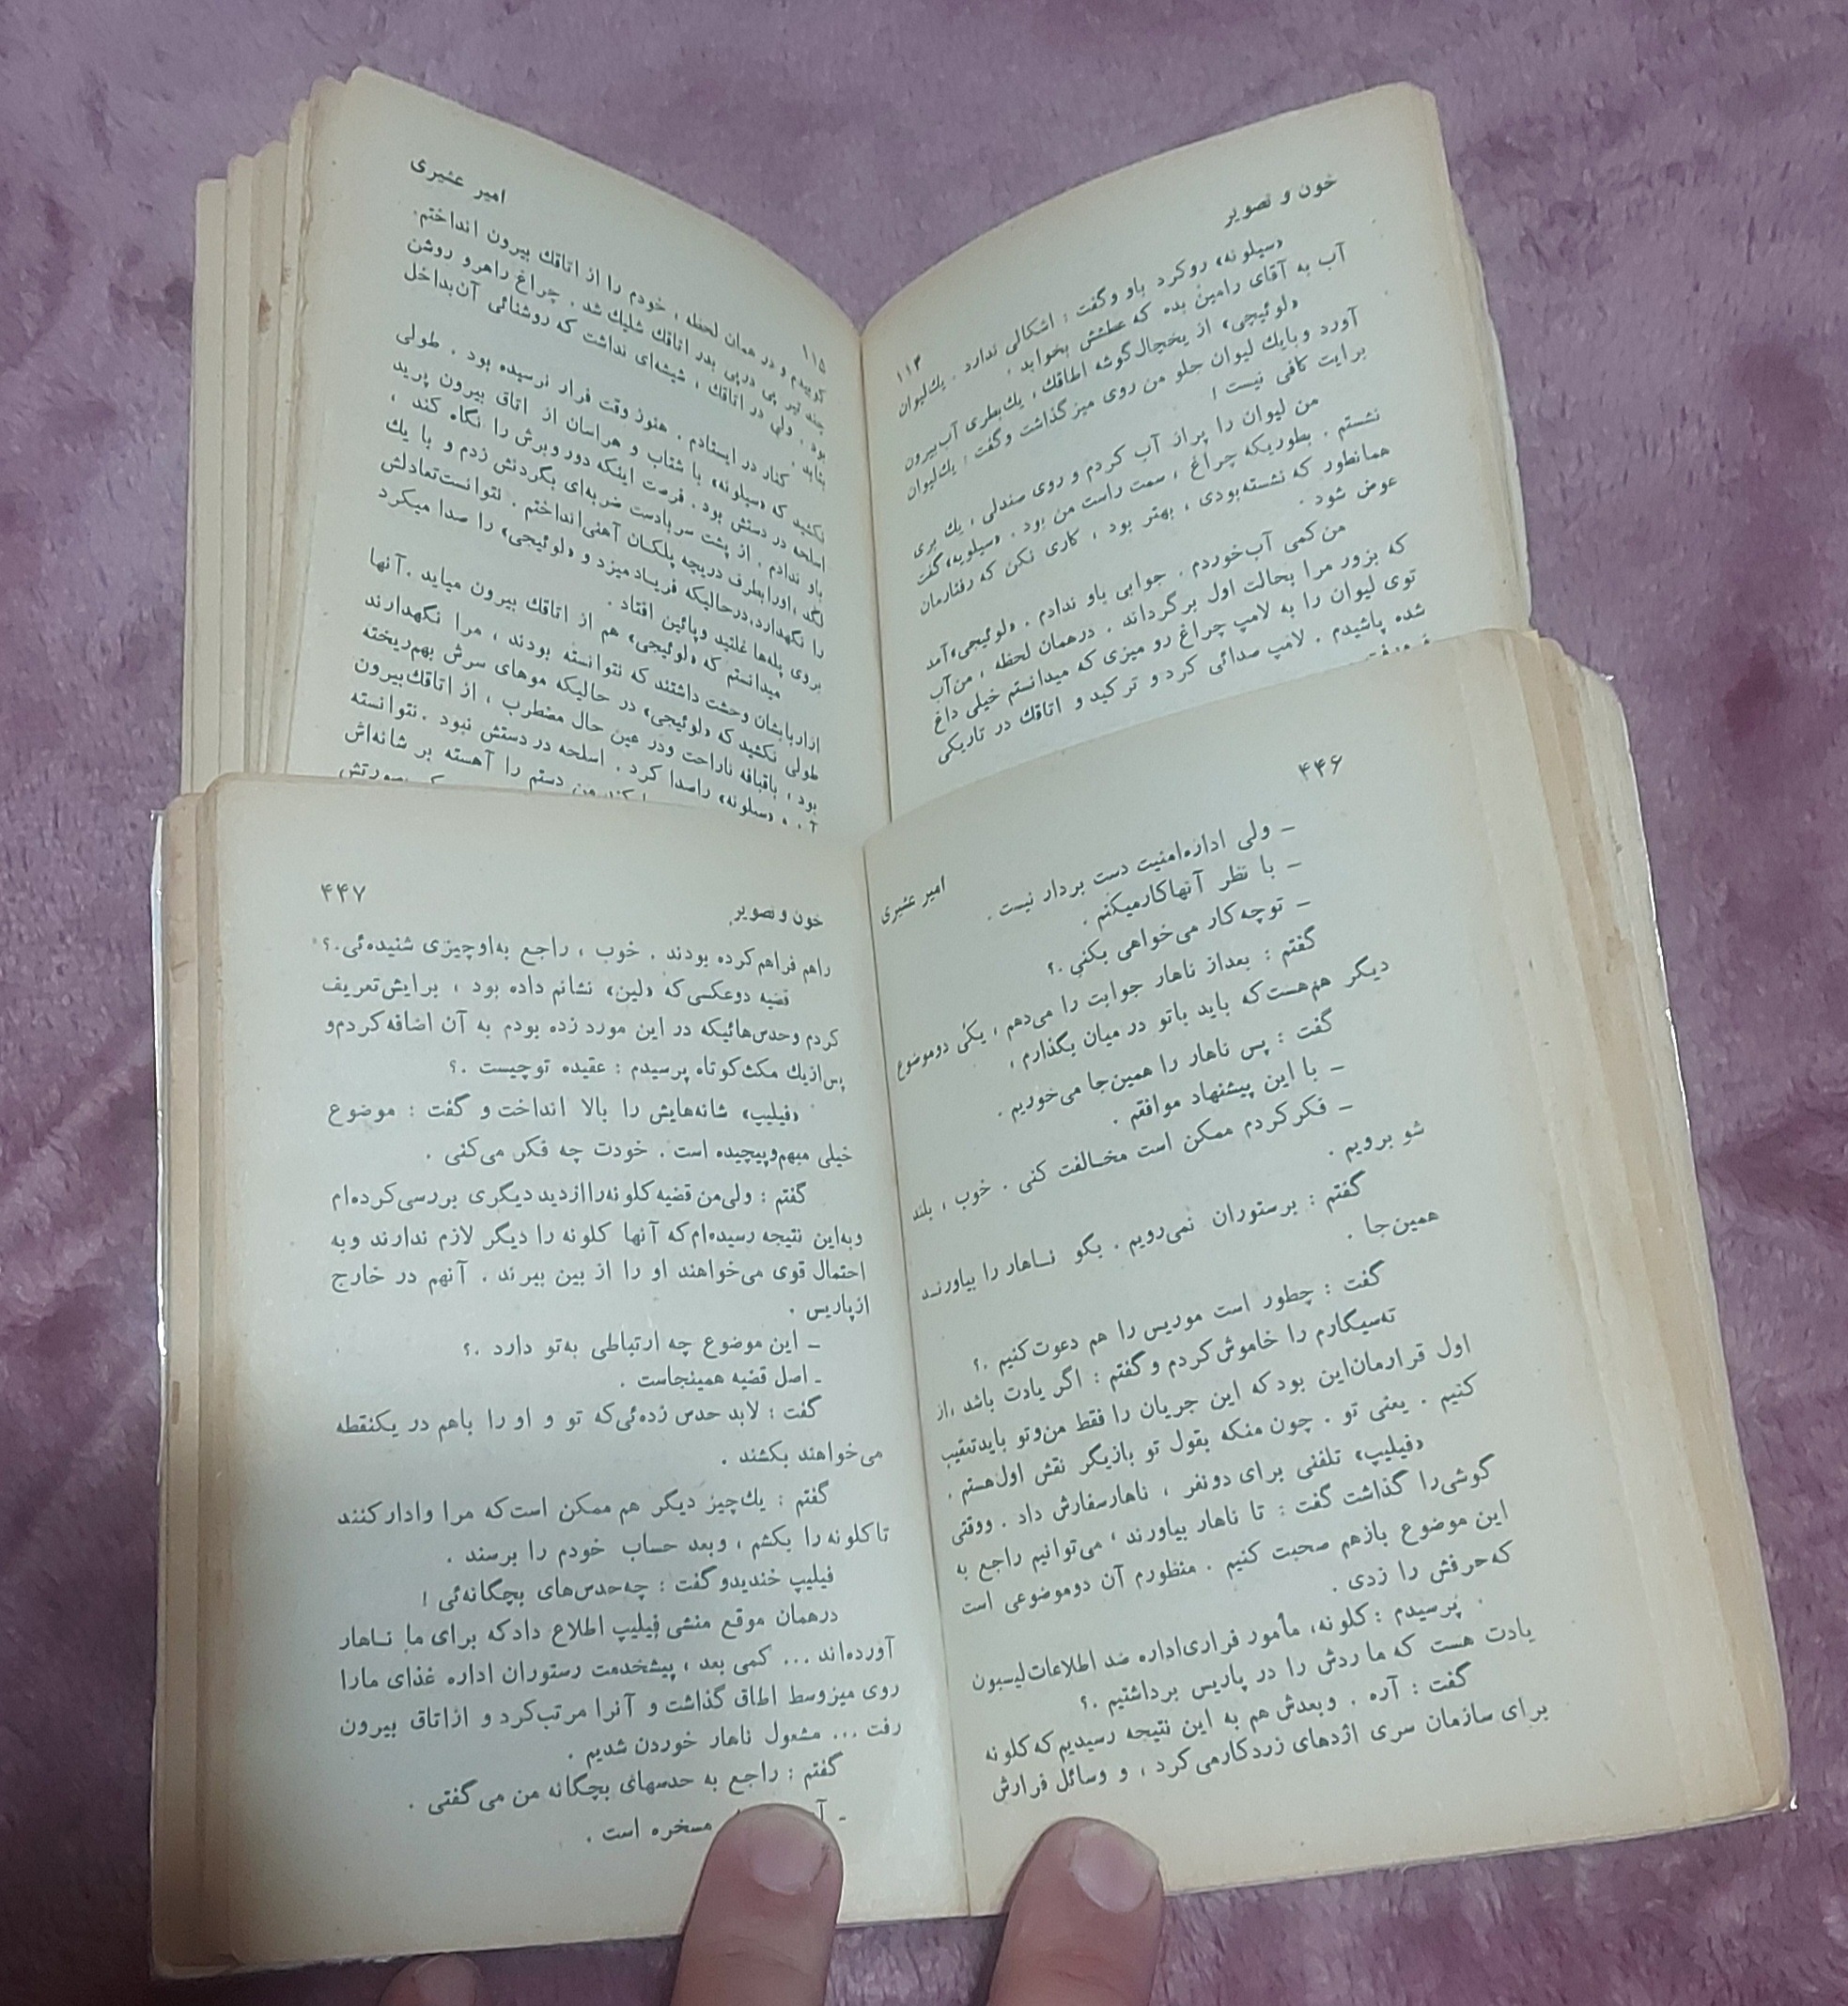 خون و تصویر
۱۱۴
«سیلونه» روکرد باو وگفت : اشکالی ندارد . یك‌لیوان
آب به آقای رامین بده که عطشش بخوابد .
«لوئیچی» از یخچال‌گوشه اطاقك ، یك‌بطری آب‌بیرون
آورد وبایك لیوان جلو من روی میزگذاشت وگفت : یك‌لیوان
برایت کافی نیست !
من لیوان را پراز آب کردم و روی صندلی ، یك بری
نشستم . بطوریکه چراغ ، سمت راست من بود . «سیلویه»گفت
همانطور که نشسته‌بودی ، بهتر بود ، کاری نکن که رفتارمان
عوض شود .
من‌کمی آب‌خوردم . جوابی باو ندادم . «لوئیجی»آمد
که بزور مرا بحالت اول برگرداند . درهمان لحظه ، من‌آب
توی لیوان را به لامپ چراغ رو میزی که میدانستم خیلی داغ
شده پاشیدم . لامپ صدائی کرد و ترکید و اتاقك در تاریکی
امیر عشیری
۱۱۵
کوبیدم و در همان لحظه ، خودم را از اتاقك بیرون انداختم.
چند تیر پی درپی بدر اتاقك شلیك شد . چراغ راهرو روشن
بود . ولی در اتاقك ، شیشه‌ای نداشت که روشنائی آن‌بداخل
بتابد .
کنار در ایستادم . هنوز وقت فرار نرسیده بود . طولی
نکشید که «سیلونه» با شتاب و هراسان از اتاق بیرون پرید
اسلحه در دستش بود . فرصت اینکه دور وبرش را نگاه کند ،
باو ندادم . از پشت سر بادست ضربه‌ای بگردنش زدم و با یك
لگد ،اورابطرف دریچه پلکان آهنی‌انداختم . نتوانست‌تعادلش
را نگهدارد.درحالیکه فریادمیزد و «لوئیجی» را صدا میکرد
بروی پله‌ها غلتید وپائین افتاد .
میدانستم که «لوئیجی» هم از اتاقك بیرون میاید .آنها
ازاربابشان وحشت داشتند که نتوانسته بودند ، مرا نگهدارند
طولی نکشید که «لوئیجی» در حالیکه موهای سرش بهم‌ریخته
بود ، باقیافه ناراحت ودر عین حال مضطرب ، از اتاقك‌بیرون
آمد و «سیلونه» راصدا کرد . اسلحه در دستش نبود .نتوانسته
من دستم را آهسته بر شانه‌اش
۴۴۶
امیر عشیری
ـ ولی اداره‌امنیت دست بردار نیست .
ـ با نظر آنهاکارمیکنم .
ـ توچه‌کار می‌خواهی بکنی .؟
گفتم : بعداز ناهار جوابت را می‌دهم ، یکی دوموضوع
دیگر هم‌هست‌که باید باتو درمیان بگذارم ،
گفت : پس ناهار را همین‌جا می‌خوریم .
ـ با این پیشنهاد موافقم .
ـ فکرکردم ممکن است مخالفت کنی . خوب ، بلند
شو برویم .
گفتم : برستوران نمی‌رویم . بگو ناهار را بیاورند
همین‌جا .
گفت : چطور است موریس را هم دعوت‌کنیم .؟
ته‌سیگارم را خاموش‌کردم وگفتم : اگر یادت باشد ،از
اول قرارمان‌این بودکه این جریان را فقط من‌وتو بایدتعقیب
کنیم . یعنی تو . چون منکه بقول تو بازیگر نقش اول‌هستم .
«فیلیپ» تلفنی برای دونفر ، ناهارسفارش داد . ووقتی
گوشی‌را گذاشت گفت : تا ناهار بیاورند ، می‌توانیم راجع به
این موضوع بازهم صحبت کنیم . منظورم آن دوموضوعی است
که‌حرفش را زدی .
پرسیدم : کلونه، مأمور فراری‌اداره ضد اطلاعات‌لیسبون
یادت هست که ما ردش را در پاریس برداشتیم .؟
گفت : آره . وبعدش هم به این نتیجه رسیدیم که‌کلونه
برای سازمان سری اژدهای زردکارمی‌کرد ، و وسائل فرارش
۴۴۷
خون و تصویر
راهم فراهم‌کرده بودند . خوب ، راجع به‌اوچیزی شنیده‌ئی.؟
قضیه دوعکسی‌که «لین» نشانم داده بود ، برایش‌تعریف
کردم وحدس‌هائیکه در این مورد زده بودم به آن اضافه‌کردم‌و
پس‌ازیك مکث‌کوتاه پرسیدم : عقیده توچیست .؟
«فیلیپ» شانه‌هایش را بالا انداخت و گفت : موضوع
خیلی مبهم‌وپیچیده است . خودت چه فکر می‌کنی .
گفتم : ولی‌من قضیه‌کلونه‌راازدید دیگری بررسی‌کرده‌ام
وبه‌این نتیجه رسیده‌ام‌که آنها کلونه را دیگر لازم ندارند وبه
احتمال قوی می‌خواهند او را از بین ببرند . آنهم در خارج
ازپاریس .
ـ این موضوع چه ارتباطی به‌تو دارد .؟
ـ اصل قضیه همینجاست .
گفت : لابد حدس زده‌ئی‌که تو و او را باهم در یکنقطه
می‌خواهند بکشند .
گفتم : یك‌چیز دیگر هم ممکن است‌که مرا وادارکنند
تاکلونه را بکشم ، وبعد حساب خودم را برسند .
فیلیپ خندیدوگفت : چه‌حدس‌های بچگانه‌ئی !
درهمان موقع منشی فیلیپ اطلاع دادکه برای ما ناهار
آورده‌اند ... کمی بعد ، پیشخدمت رستوران اداره غذای مارا
روی میزوسط اطاق گذاشت و آنرا مرتب‌کرد و ازاتاق بیرون
رفت ... مشغول ناهار خوردن شدیم .
گفتم : راجع به حدسهای بچگانه من می‌گفتی .
مسخره است .